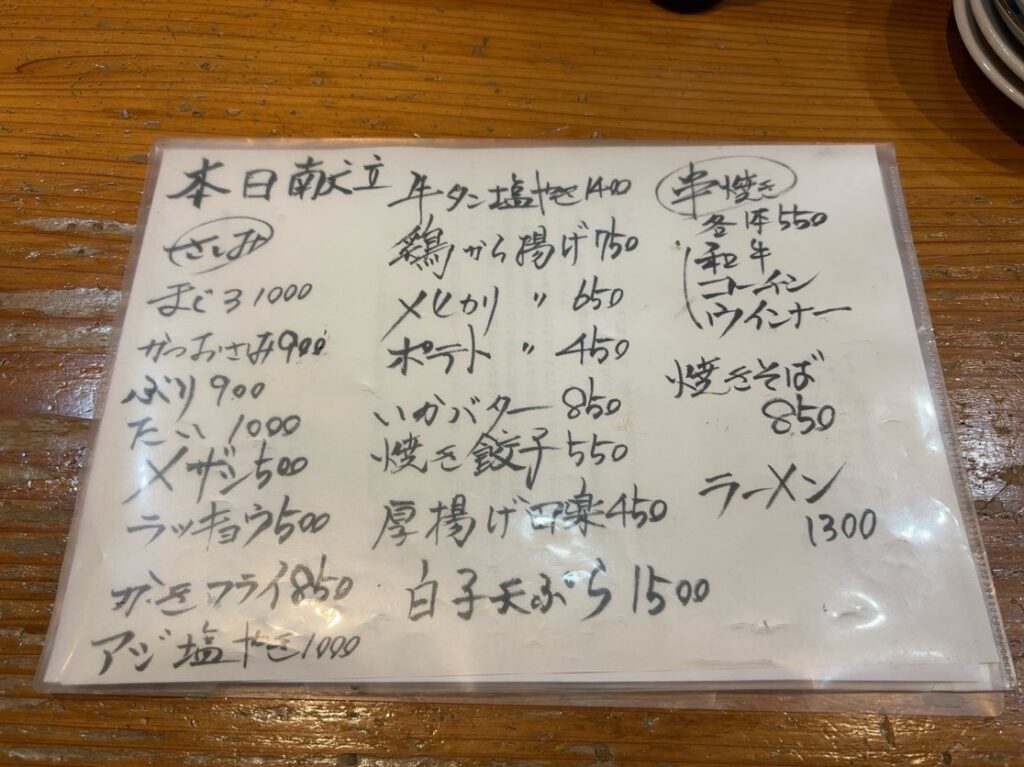 本日献立
さしみ
まぐろ1000
かつおさしみ900
ぶり900
たい1000
メザシ500
ラッキョウ500
かきフライ850
アジ塩やき1000
牛タン塩やき1400
鶏から揚げ750
メヒカリ〃650
ポテト〃450
いかバター850
焼き餃子550
厚揚げ田楽450
白子天ぷら1500
串焼き
各1本550
和牛
ウインナー
焼きそば
850
ラーメン
1300